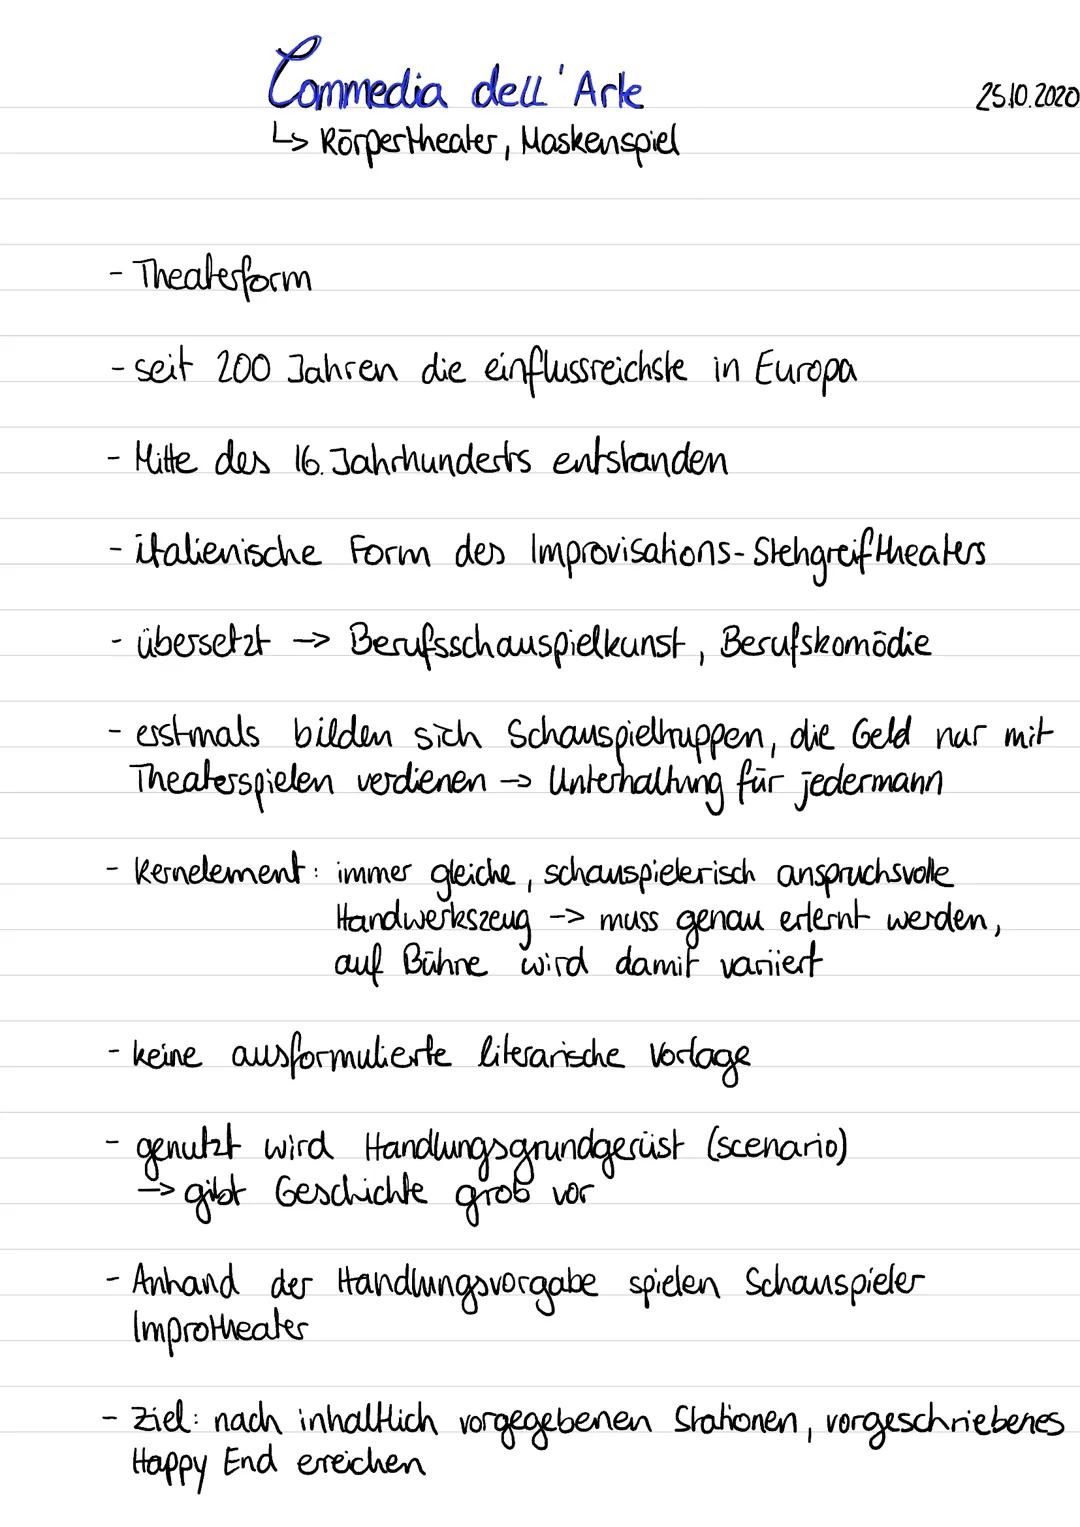 Commedia dell'Arte
25.10.2020
↳ Körpertheater, Maskenspiel
- Theaterform
- seit 200 Jahren die einflussreichste in Europa
- Mitte des 16. Jahrhunderts entstanden
- italienische Form des Improvisations-Stehgreiftheaters
- übersetzt -> Berufsschauspielkunst, Berufskomödie
- erstmals bilden sich Schauspieltruppen, die Geld nur mit
Theaterspielen verdienen -> Unterhaltung für jedermann
- Kernelement: immer gleiche, schauspielerisch anspruchsvolle
Handwerkszeug -> muss genau erlernt werden,
auf Bühne wird damit variiert
- keine ausformulierte literarische Vorlage
- genutzt wird Handlungsgrundgerüst (scenario)
-> gibt Geschichte grob vor
- Anhand der Handlungsvorgabe spielen Schauspieler
Improtheater
- Ziel: nach inhaltlich vorgegebenen Stationen, vorgeschriebenes
Happy End erreichen